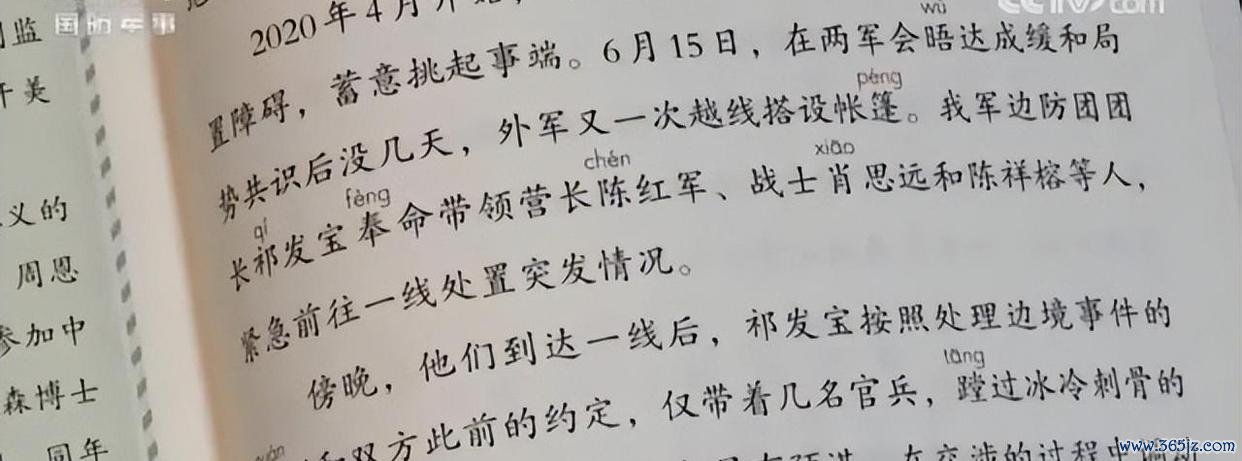 监
美
义的
周恩
参加中
森博士
同年
国防军事
CCTV.com
2020年4月开始,
wù
置障碍,蓄意挑起事端。6月15日,在两军会晤达成缓和局
péng
势共识后没几天,外军又一次越线搭设帐篷。我军边防团团
qí fèng chén xiāo
长祁发宝奉命带领营长陈红军、战士肖思远和陈祥榕等人,
紧急前往一线处置突发情况。
傍晚,他们到达一线后,祁发宝按照处理边境事件的
tāng
和双方此前的约定,仅带着几名官兵,蹚过冰冷刺骨的
在交涉的过程中
www.365jz.com